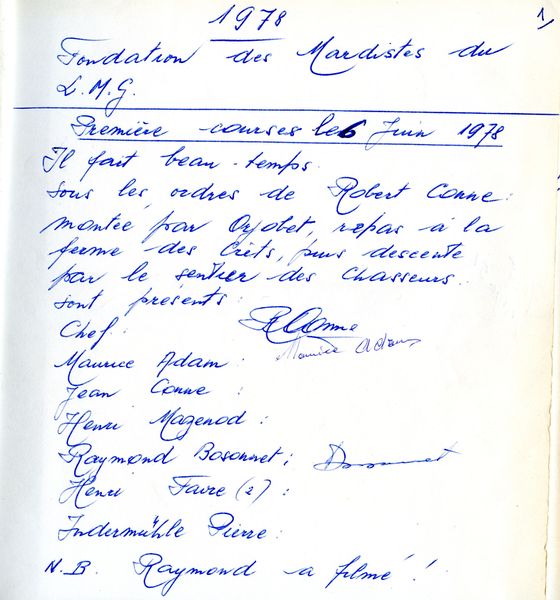 1
1978
Fondation des Mardistes du
L.M.G.
Première courses le 6 Juin 1978
Il fait beau-temps.
Sous les ordres de Robert Conne:
montée par Orjobet, repas à la
ferme des Crêts, puis descente
par le sentier des Chasseurs.
sont présents:
Chef: RConne
Maurice Adam: Maurice Adam
Jean Conne:
Henri Magenod:
Raymond Bosonnet:
Henri Favre (2):
Indermühle Pierre:
N.B. Raymond a filmé!